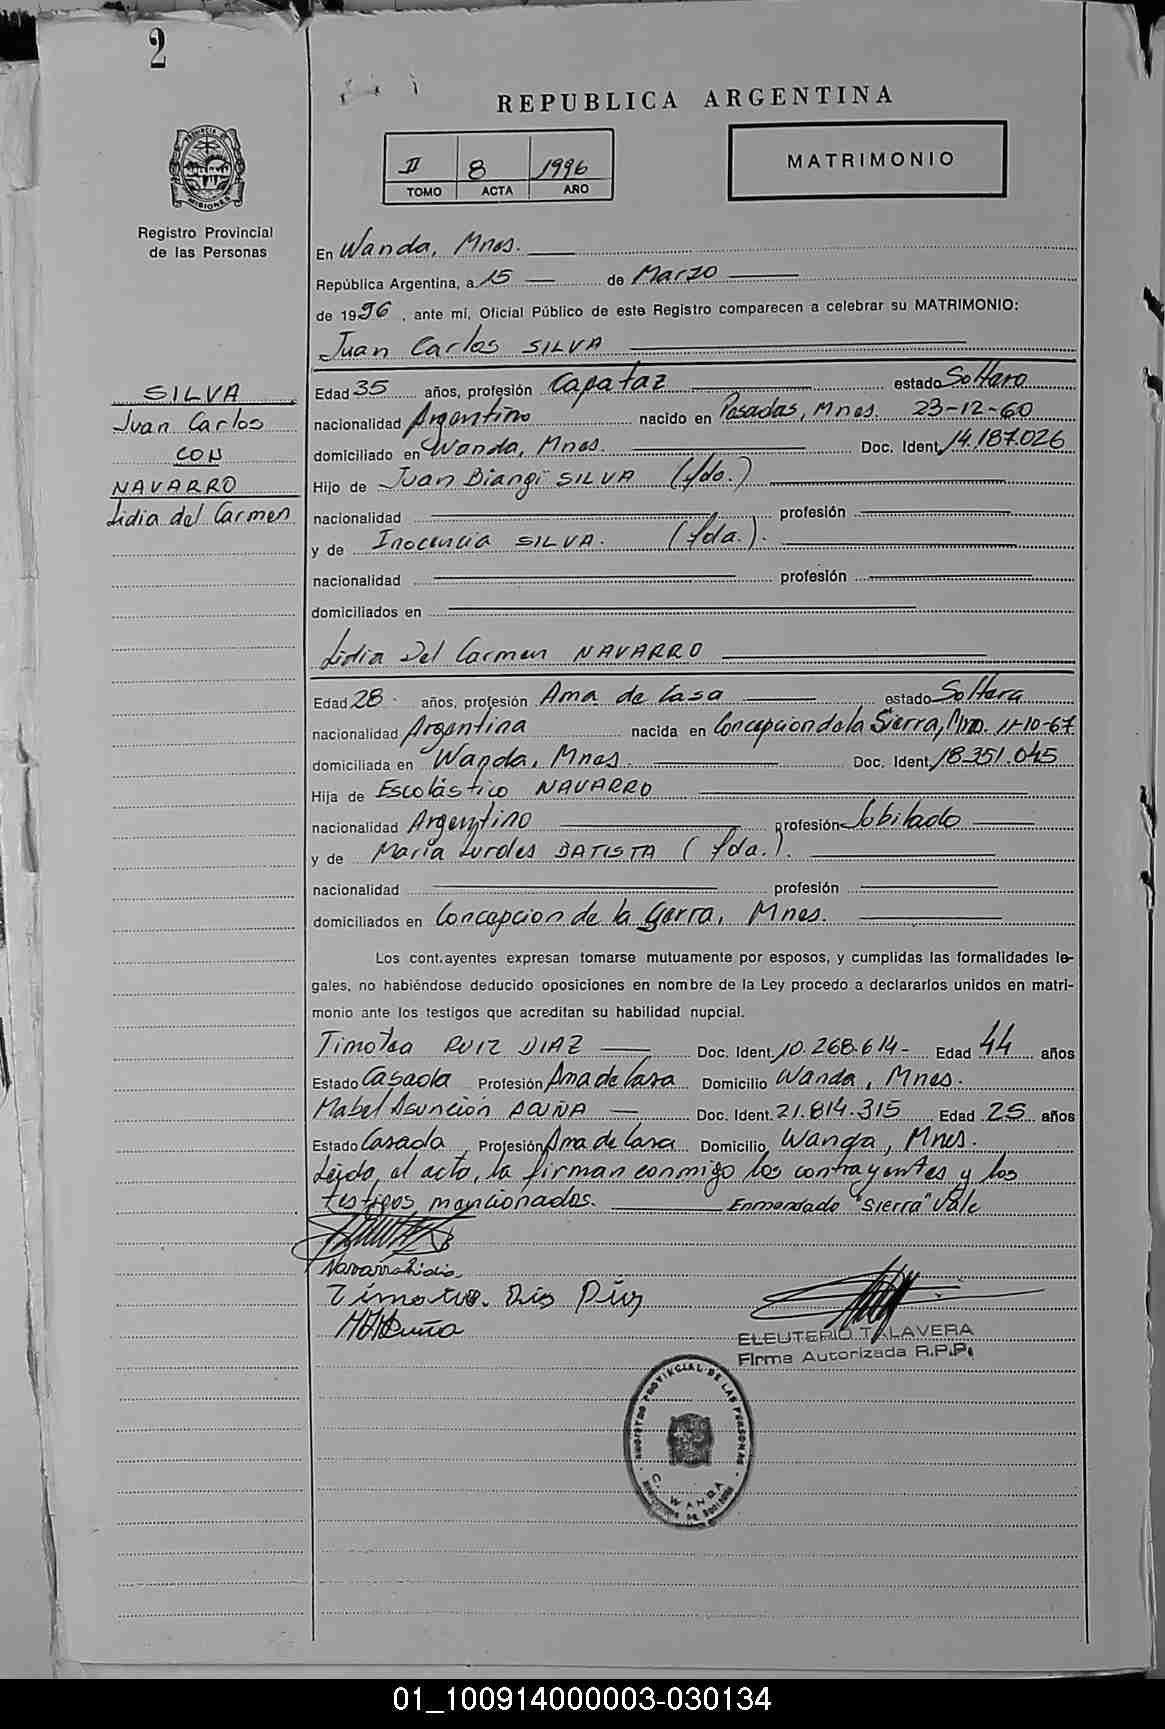 2
REPUBLICA ARGENTINA
II 8 1996
TOMO ACTA AÑO
MATRIMONIO
PROVINCIA DE
MISIONES
Registro Provincial
de las Personas
En Wanda, Mnes.
República Argentina, a 15 de Marzo
de 1996, ante mí, Oficial Público de este Registro comparecen a celebrar su MATRIMONIO:
Juan Carlos SILVA
SILVA
Juan Carlos
CON
NAVARRO
Lidia del Carmen
Edad 35 años, profesión Capataz estado Soltero
nacionalidad Argentino nacido en Posadas, Mnes. 23-12-60
domiciliado en Wanda, Mnes. Doc. Ident. 14.187.026
Hijo de Juan Biangi SILVA (fdo.)
nacionalidad profesión
y de Inocencia SILVA. (fda.).
nacionalidad profesión
domiciliados en
Lidia Del Carmen NAVARRO
Edad 28. años, profesión Ama de Casa estado Soltera
nacionalidad Argentina nacida en Concepcion de la Sierra, Mnes. 11-10-67
domiciliada en Wanda, Mnes. Doc. Ident. 18.351.045
Hija de Escolástico NAVARRO
nacionalidad Argentino profesión Jubilado
y de María Lurdes BATISTA (fda.).
nacionalidad profesión
domiciliados en Concepcion de la Sierra, Mnes.
Los cont.ayentes expresan tomarse mutuamente por esposos, y cumplidas las formalidades le-
gales, no habiéndose deducido oposiciones en nombre de la Ley procedo a declararlos unidos en matri-
monio ante los testigos que acreditan su habilidad nupcial.
Timotea RUIZ DIAZ Doc. Ident. 10.268.614- Edad 44 años
Estado Casada Profesión Ama de Casa Domicilio Wanda, Mnes.
Mabel Asunción ACUÑA Doc. Ident. 21.814.315 Edad 25 años
Estado Casada Profesión Ama de Casa Domicilio Wanda, Mnes.
Leido el acto, la firman conmigo los contrayentes y los
testigos mencionados. Enmendado "Sierra" Vale
Navarro Lidia
MACuña
ELEUTERIO TALAVERA
Firma Autorizada R.P.P.
REGISTRO PROVINCIAL DE LAS PERSONAS
C. WANDA
01_100914000003-030134